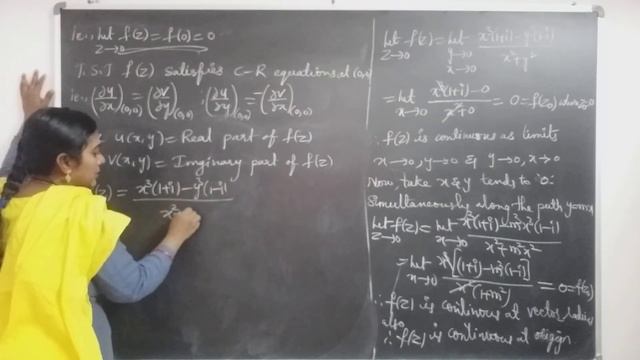 ie., Let f(z) = f(0) = 0
z→0
T.S.T f(z) satisfies C-R equations at (0,0)
ie., (∂u/∂x)(0,0) = (∂v/∂y)(0,0), (∂u/∂y)(0,0) = -(∂v/∂x)(0,0)
u(x,y) = Real part of f(z)
v(x,y) = Imginary part of f(z)
z) = x³(1+i) - y³(1-i)
x²
Let f(z) = Let x³(1+i) - y³(1-i) / x²+y²
z→0 y→0
x→0
= Let x³(1+i) - 0 / x²+0 = 0 = f(z0) when z0=0
x→0
∴ f(z) is continuous as limits
x→0, y→0 & y→0, x→0
Now, take x & y tends to '0'
Simultaneously along the path y=mx
Let f(z) = Let x³(1+i) - m³x³(1-i) / x²+m²x²
z→0 x→0
= Let x³[(1+i) - m³(1-i)] / x²(1+m²) = 0 = f(z0)
x→0
∴ f(z) is continous at vector radius
also
∴ f(z) is continous at origin